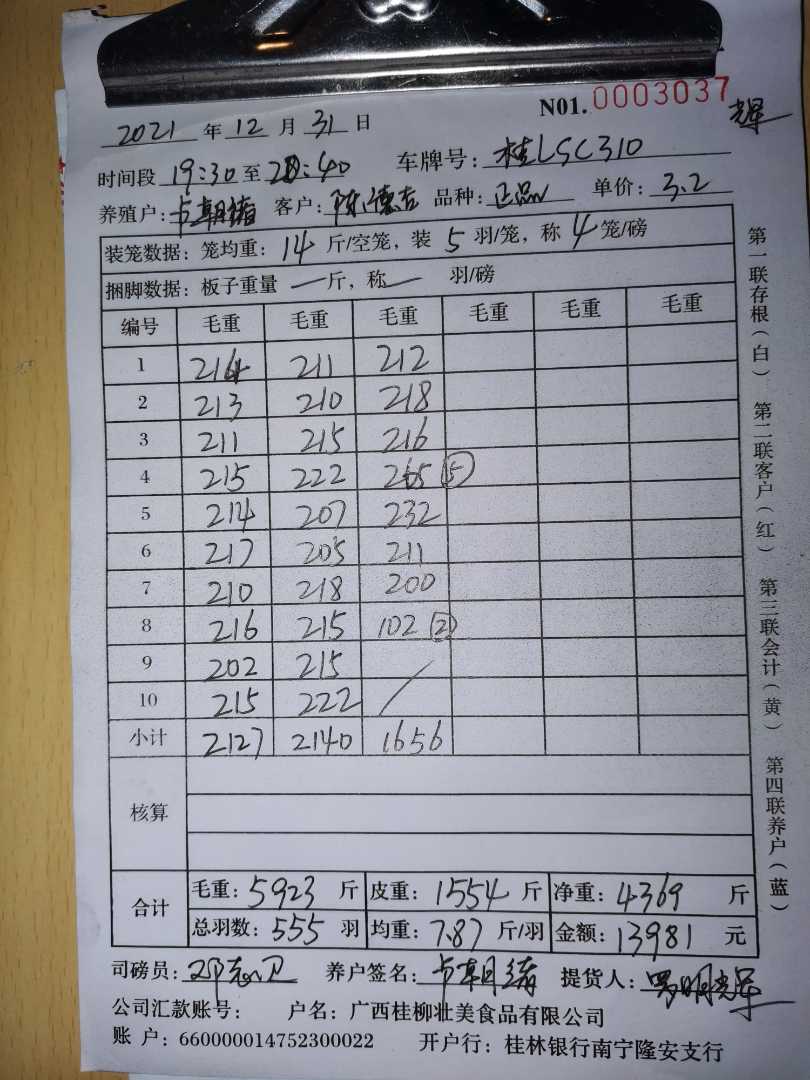 NO1.0003037
辉
2021年12月31日
时间段 19:30至20:40 车牌号: 桂LSC310
养殖户: 卢朝绪 客户: 陈德吉 品种: 正品 单价: 3.2
装笼数据: 笼均重: 14斤/空笼, 装5羽/笼, 称4笼/磅
捆脚数据: 板子重量 一斤, 称一 羽/磅
编号 毛重 毛重 毛重 毛重 毛重 毛重
1 214 211 212
2 213 210 218
3 211 215 216
4 215 222 265 ⑤
5 214 207 232
6 217 205 211
7 210 218 200
8 216 215 102 ②
9 202 215
10 215 222 /
小计 2127 2140 1656
核算
合计 毛重: 5923斤 皮重: 1554斤 净重: 4369斤
总羽数: 555羽 均重: 7.87斤/羽 金额: 13981元
司磅员: 邓志卫 养户签名: 卢朝绪 提货人:
公司汇款账号: 户名: 广西桂柳壮美食品有限公司
账 户: 660000014752300022 开户行: 桂林银行南宁隆安支行
第一联存根(白) 第二联客户(红) 第三联会计(黄) 第四联养户(蓝)